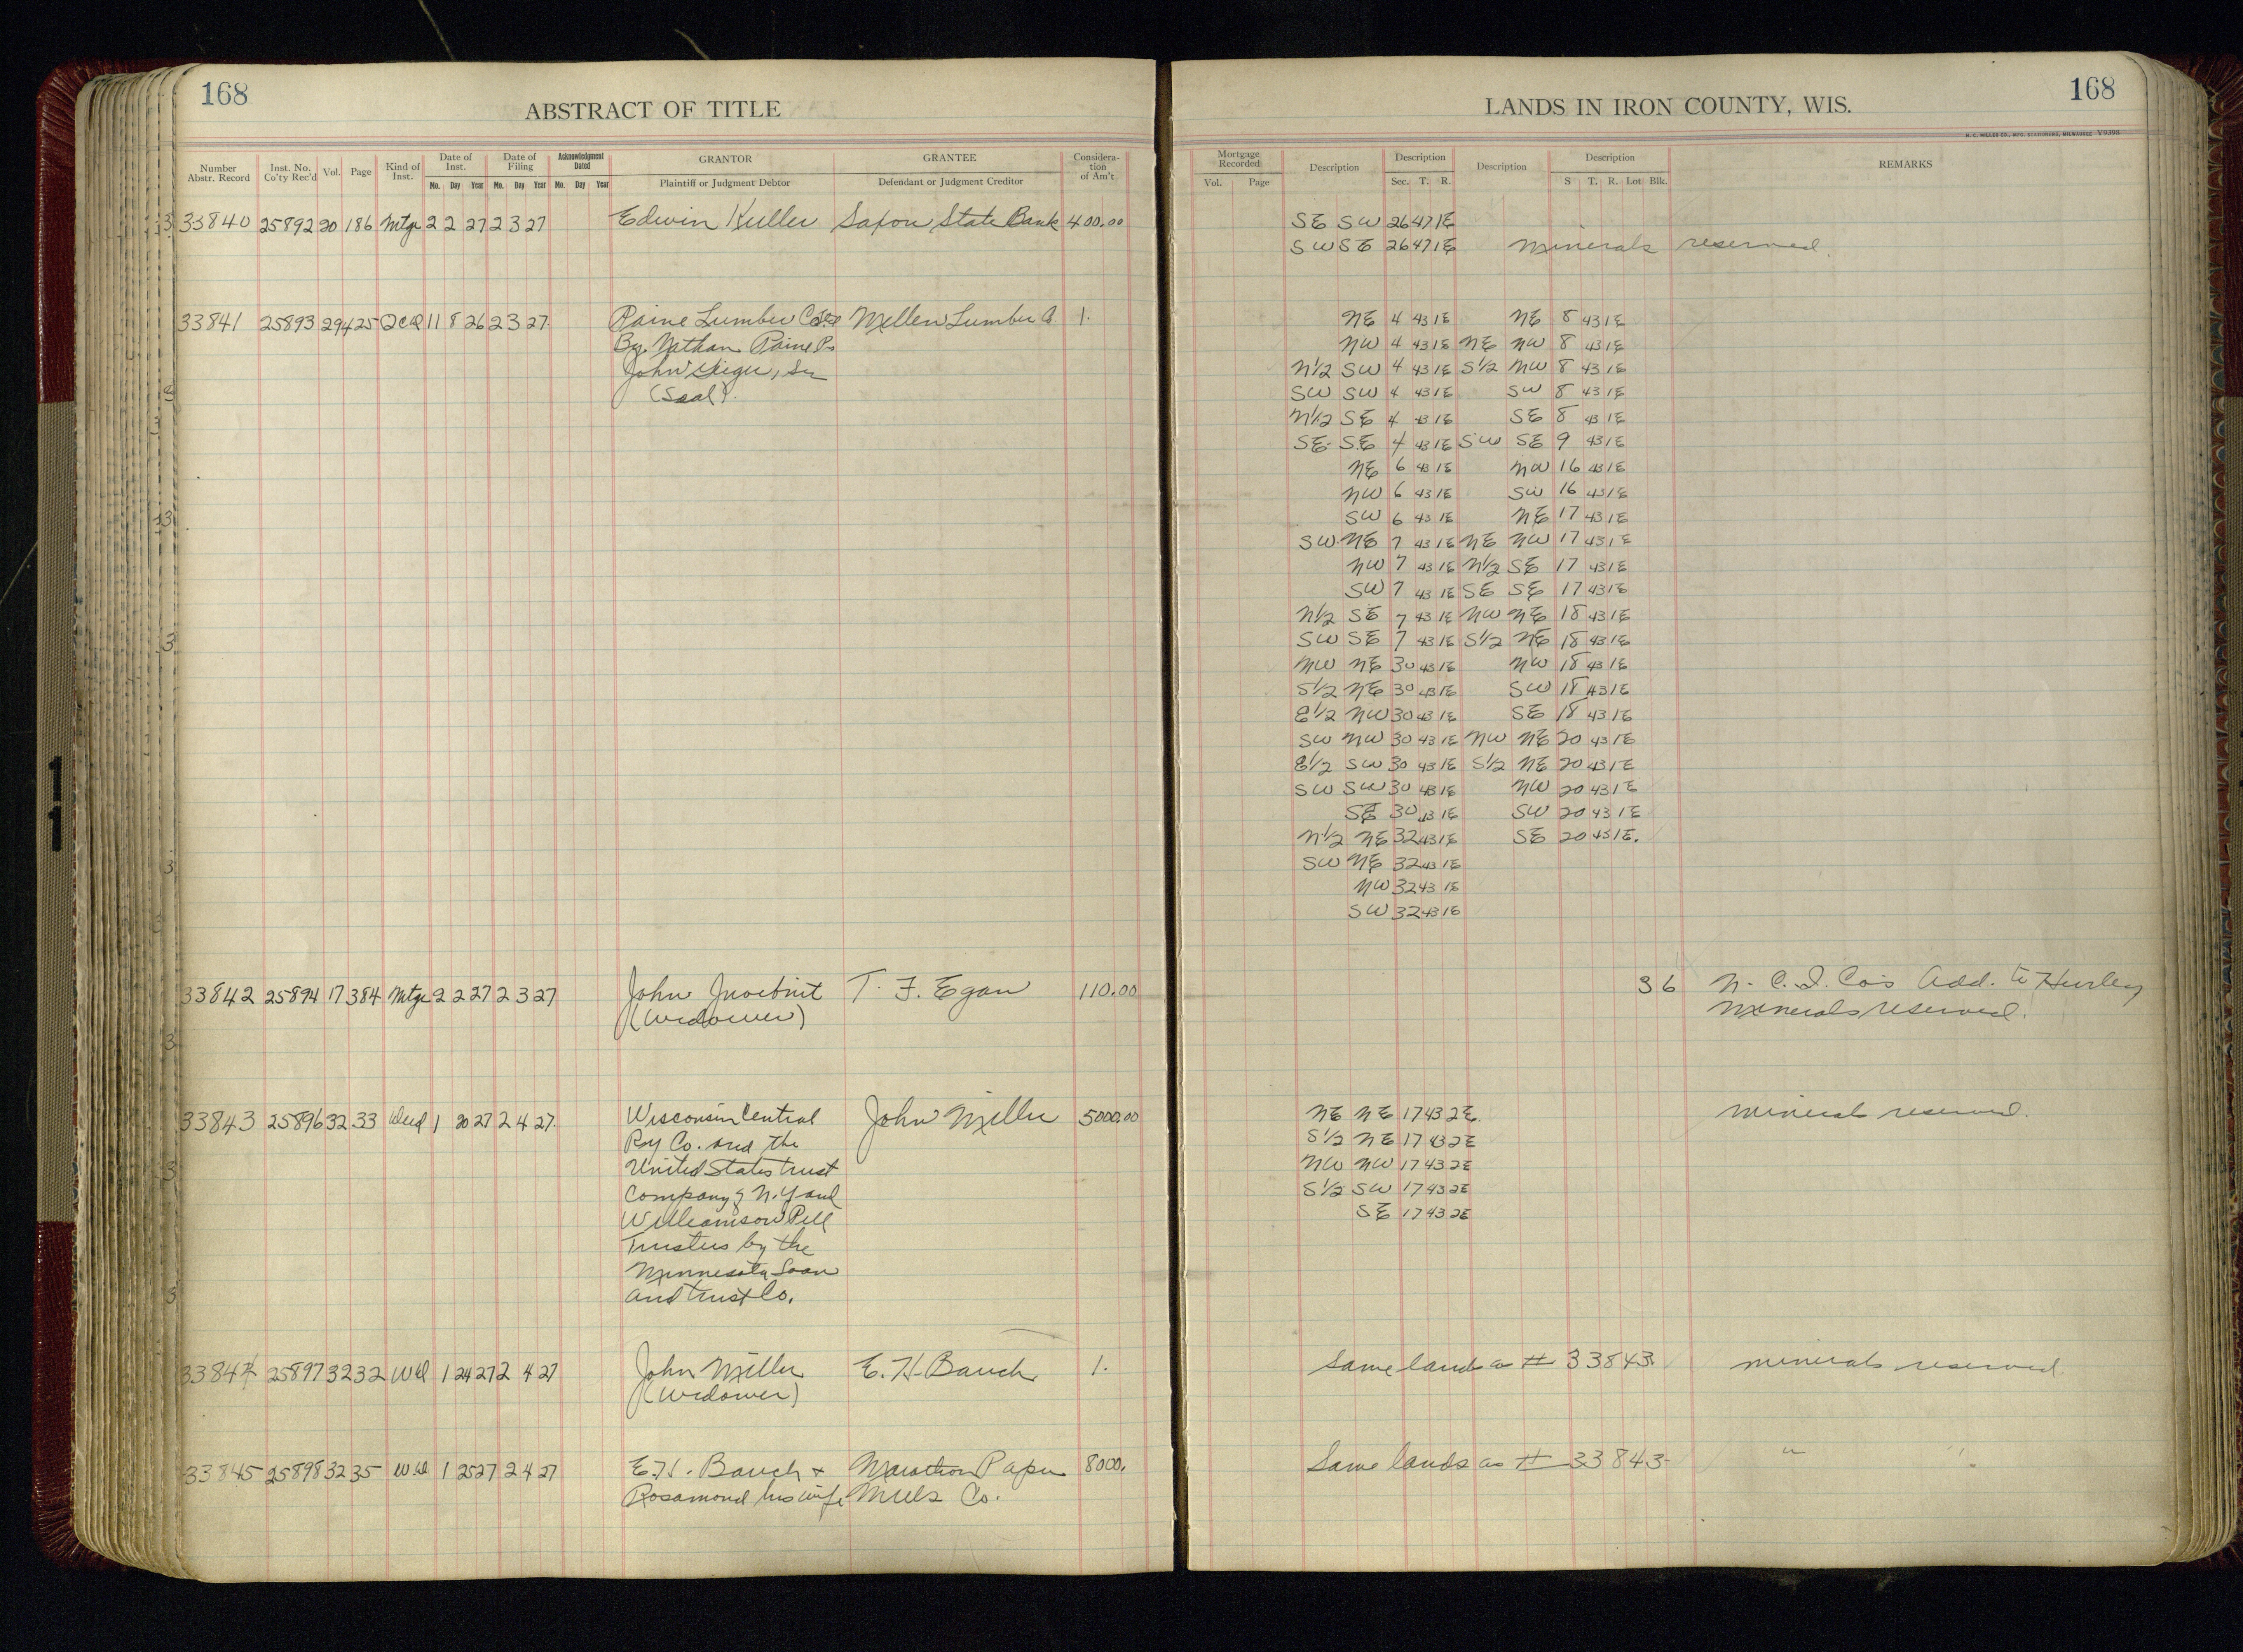 168
ABSTRACT OF TITLE
Number Abstr. Record | Inst. No. Co'ty Rec'd | Vol. | Page | Kind of Inst. | Date of Inst. Mo. Day Year | Date of Filing Mo. Day Year | Acknowledgment Dated Mo. Day Year | GRANTOR Plaintiff or Judgment Debtor | GRANTEE Defendant or Judgment Creditor | Consideration of Am't
33840 25892 20 186 Mtge 2 2 27 2 3 27 Edwin Kuller Saxon State Bank 400.00
33841 25893 29 425 QCD 11 8 26 2 3 27 Paine Lumber Co Mellen Lumber Co 1.
By Nathan Paine Ps
John , Sec
(Seal).
33842 25894 17 384 Mtge 2 2 27 2 3 27 John T. F. Egan 110.00
(Widower)
33843 25896 32 33 Deed 1 20 27 2 4 27. Wisconsin Central John Miller 5000.00
Ry Co. and the
United States trust
Company of N.Y and
Williamson Pell
Trustees by the
Minnesota Loan
and trust Co.
33844 25897 32 32 WD 1 24 27 2 4 27 John Miller E. H. Bauch 1.
(Widower)
33845 25898 32 35 WD 1 25 27 2 4 27 E. H. Bauch + Marathon Paper 8000.
Rosamond his wife Mills Co.
168
LANDS IN IRON COUNTY, WIS.
H. C. MILLER CO., MFG. STATIONERS, MILWAUKEE V9398
Mortgage Recorded Vol. Page | Description | Description Sec. T. R. | Description | Description S T. R. Lot Blk. | REMARKS
SE SW 26 47 1E
SW SE 26 47 1E minerals reserved.
NE 4 43 1E NE 8 43 1E
NW 4 43 1E NE NW 8 43 1E
N1/2 SW 4 43 1E S1/2 NW 8 43 1E
SW SW 4 43 1E SW 8 43 1E
N1/2 SE 4 43 1E SE 8 43 1E
SE SE 4 43 1E SW SE 9 43 1E
NE 6 43 1E NW 16 43 1E
NW 6 43 1E SW 16 43 1E
SW 6 43 1E NE 17 43 1E
SW NE 7 43 1E NE NW 17 43 1E
NW 7 43 1E N1/2 SE 17 43 1E
SW 7 43 1E SE SE 17 43 1E
N1/2 SE 7 43 1E NW NE 18 43 1E
SW SE 7 43 1E S1/2 NE 18 43 1E
NW NE 30 43 1E NW 18 43 1E
S1/2 NE 30 43 1E SW 18 43 1E
E1/2 NW 30 43 1E SE 18 43 1E
SW NW 30 43 1E NW NE 20 43 1E
E1/2 SW 30 43 1E S1/2 NE 20 43 1E
SW SW 30 43 1E NW 20 43 1E
SE 30 43 1E SW 20 43 1E
N1/2 NE 32 43 1E SE 20 43 1E.
SW NE 32 43 1E
NW 32 43 1E
SW 32 43 1E
36 N. C. I. Co's Add. to Hurley
Minerals reserved.
NE NE 17 43 2E. minerals reserved.
S1/2 NE 17 43 2E
NW NW 17 43 2E
S1/2 SW 17 43 2E
SE 17 43 2E
Same lands as # 33843. minerals reserved.
Same lands as # 33843. " "